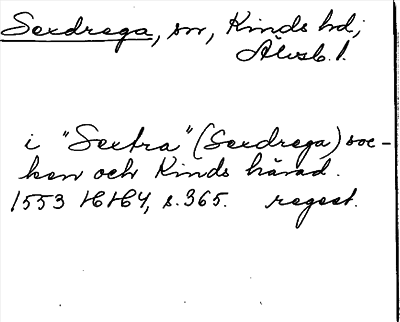 Sexdrega, sn, Kinds hd,
Älvsb. l.
i "Sextra" (Sexdrega) soc-
ken och Kinds härad.
1553 HH4, s. 365. regest.